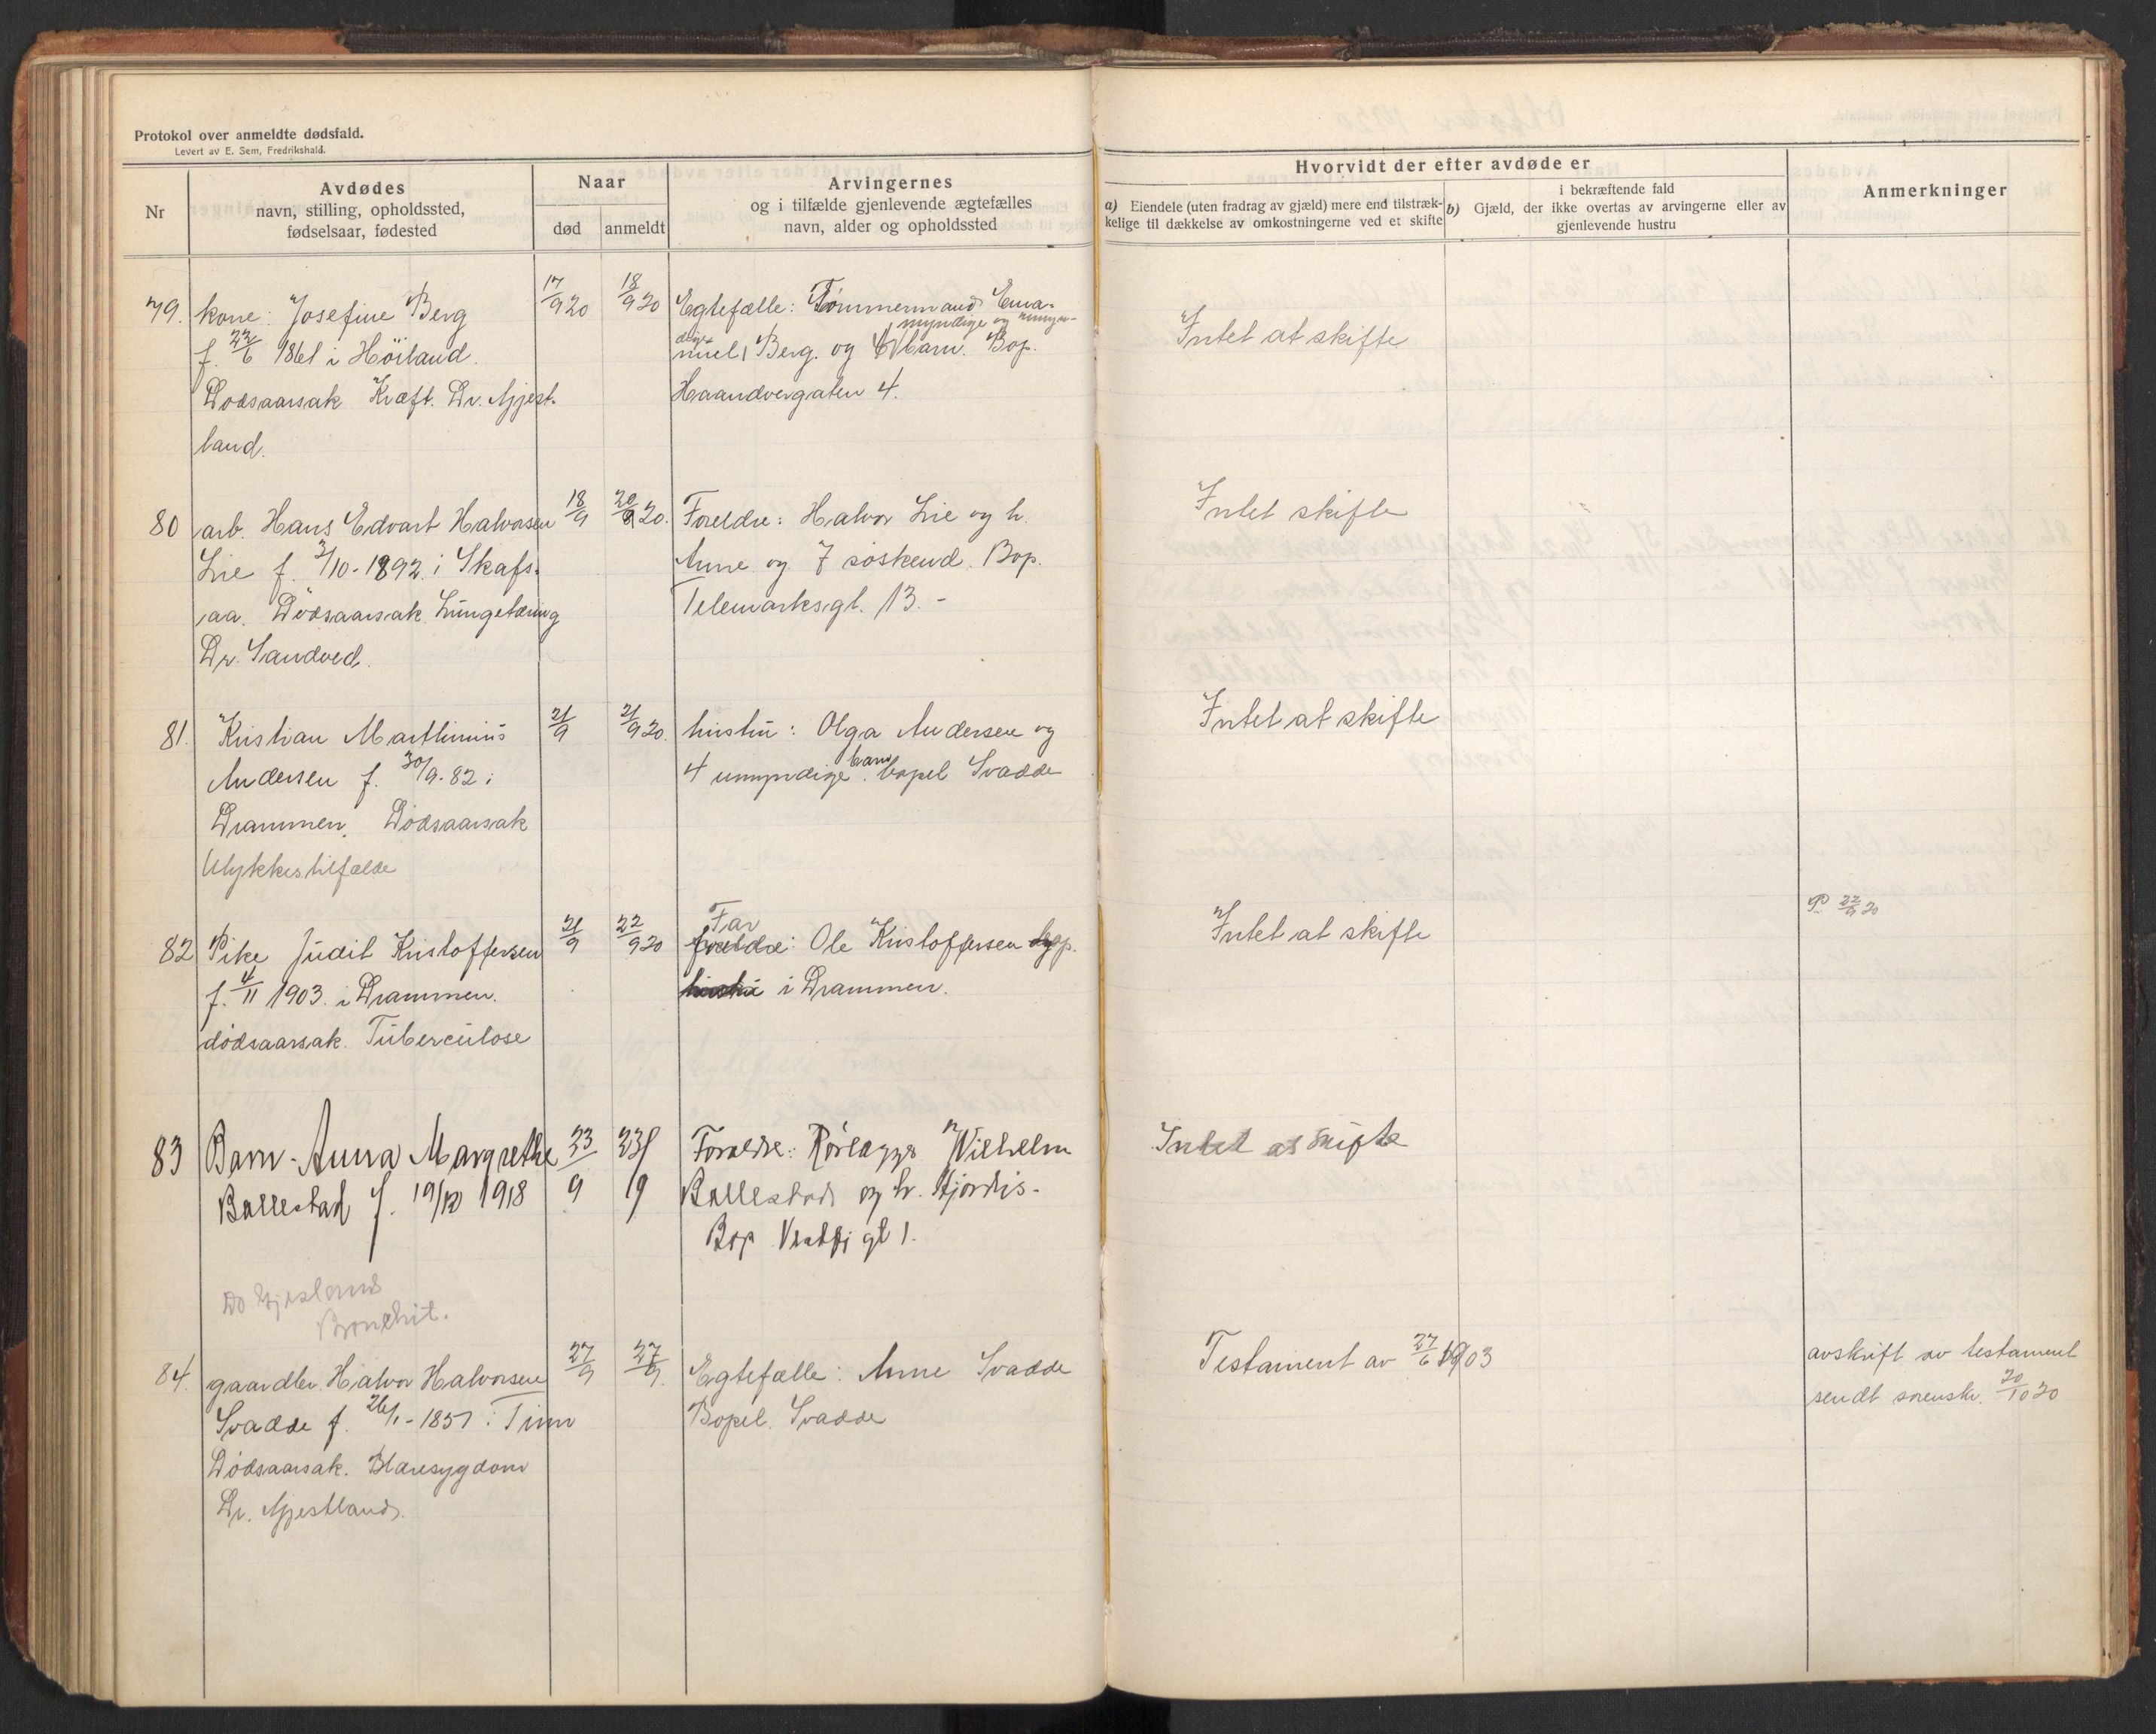 Protokol over anmeldte dødsfald.
Levert av E. Sem, Fredrikshald.
Nr
Avdødes
navn, stilling, opholdssted,
fødselsaar, fødested
Naar
død
anmeldt
Arvingernes
og i tilfælde gjenlevende ægtefælles
navn, alder og opholdssted
Hvorvidt der efter avdøde er
a) Eiendele (uten fradrag av gjæld) mere end tilstræk-
kelige til dækkelse av omkostningerne ved et skifte
i bekræftende fald
b) Gjæld, der ikke overtas av arvingerne eller av
gjenlevende hustru
Anmerkninger
79. kone: Josefine Berg
f. 22/6 1861 i Höiland.
Dødsaarsak Kræft. Dr. Gjest-
land.
17/9 20
18/9 20
Egtefælle: Tømmermand Ema-
myndige og umyn-
dige
nuel Berg. og barn. Bop.
Haandvergaten 4.
Intet at skifte
80 arb. Hans Edvart Halvorsen
Lie f. 3/10-1892 i Skafs-
aa. Dødsaarsak Lungetæring
Dr. Sandved.
18/9
20/9 20.
Foreldre: Halvor Lie og h.
Anne og 7 søskend. Bop.
Telemarksgt. 13. -
Intet skifte
81. Kristian Marthinius
Andersen f. 30/9-82 i
Drammen. Dødsaarsak
Ulykkestilfælde
21/9
21/9 20.
hustru: Olga Andersen og
barn
4 umyndige. bopel Svadde
Intet at skifte
82 Pike Judit Kristoffersen
f. 4/11 1903. i Drammen.
dødsaarsak. Tuberculose
21/9
22/9 20
Far
foreldre: Ole Kristoffersen bop.
hustru i Drammen.
Intet at skifte
P. 22/9 20
83 Barn - Anna Margrethe
Ballestad f. 19/10 1918
23/9
23/9
Forældre: Rørlægger Wilhelm
Ballestad og h. Hjørdis.
Bop Vestfj gt 1.
Intet at skifte
Dr. Gjestland
Bronchit.
84. gaardbr. Halvor Halvorsen
Svadde f. 26/1-1857 i Tinn
Dødsaarsak. Blæresygdom
Dr. Gjestland.
27/9
27/9.
Egtefælle: Anne Svadde
Bopel. Svadde
Testament av 27/6 1903
avskrift av testament
sendt sorenskr. 20/10 20